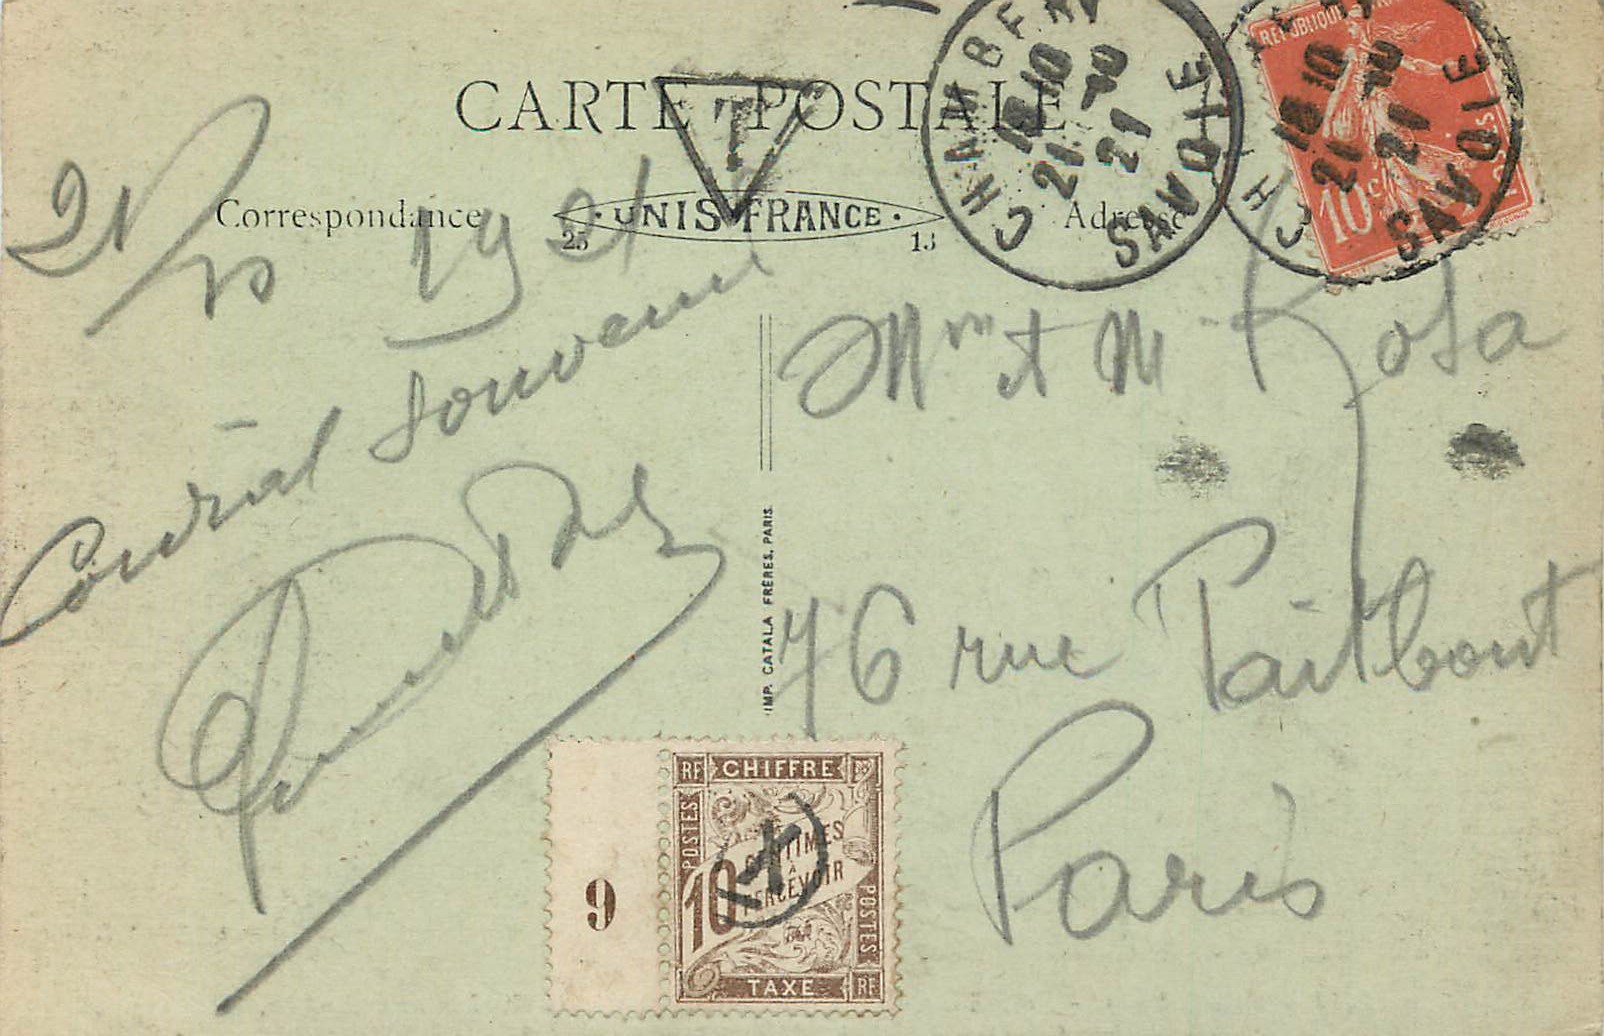 CARTE POSTALE
T
Correspondance
Adresse
UNIS-FRANCE
25
13
CHAMBERY
18 10
21 -10
21
SAVOIE
18 10
21 -10
21
SAVOIE
REPUBLIQUE
10c
POSTES
21/10 1921
Cordial Souvenir
Mme et M Rosa
76 rue Taitbout
Paris
IMP. CATALA FRÈRES, PARIS.
9
RF CHIFFRE
POSTES
10 CENTIMES
À
PERCEVOIR
POSTES
TAXE RF